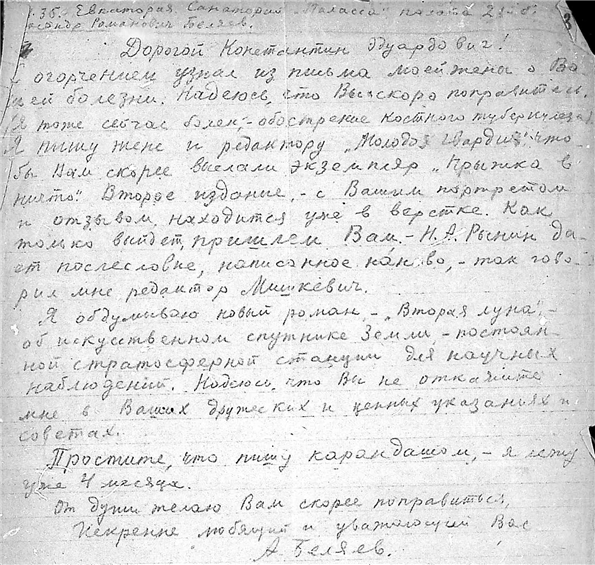 35.- Евпатория Санаторий "Таласса" палата 2
Александр Романович Беляев.
Дорогой Константин Эдуардович!
С огорчением узнал из письма моей жены о Ва-
шей болезни. Надеюсь, что Вы скоро поправитесь.
Я тоже сейчас болен - обострение костного туберкулеза
Я пишу жене и редактору "Молодой Гвардии", что-
бы Вам скорее выслали экземпляр "Прыжка в
ничто". Второе издание, - с Вашим портретом
и отзывом находится уже в верстке. Как
только выйдет, пришлем Вам. - Н. А. Рынин да-
ет послесловие, написанное заново, - так гово-
рил мне редактор Мишкевич.
Я обдумываю новый роман, - "Вторая луна", -
об искусственном спутнике Земли, - постоян-
ной стратосферной станции для научных
наблюдений. Надеюсь, что Вы не откажите
мне в Ваших дружеских и ценных указаниях и
советах.
Простите, что пишу карандашом, - я лежу
уже 4 месяца.
От души желаю Вам скорее поправиться,
Искренне любящий и уважающий Вас
А. Беляев.